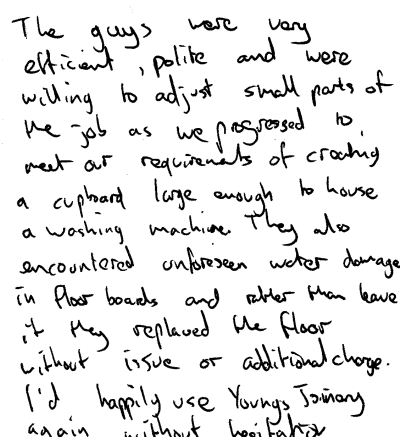 The guys were very
efficient, polite and were
willing to adjust small parts of
the job as we progressed to
meet our requirements of creating
a cupboard large enough to house
a washing machine. They also
encountered unforeseen water damage
in floor boards and rather than leave
it they replaced the floor
without issue or additional charge.
I'd happily use Youngs Joinery
again without hesitation